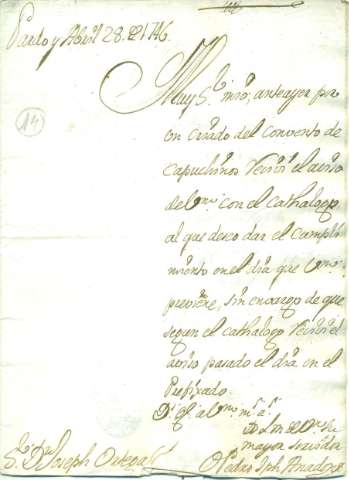 Pardo y Abril 28. de 1746.
14
Muy Sr. mio, anteayer por
un criado del convento de
Capuchinos recivi el aviso
de Vm. con el cathalogo
al que deseo dar el cumpli
miento en el dia que Vm.
previene, sin embargo de que
segun el cathalogo recivi el
aviso pasado el dia en el
Prefixado.
Ds. ge. a Vm. ms. as.
B. L. M. de Vm. su
mayor servidor
Sr. Dn. Joseph Ortega
Pedro Jph